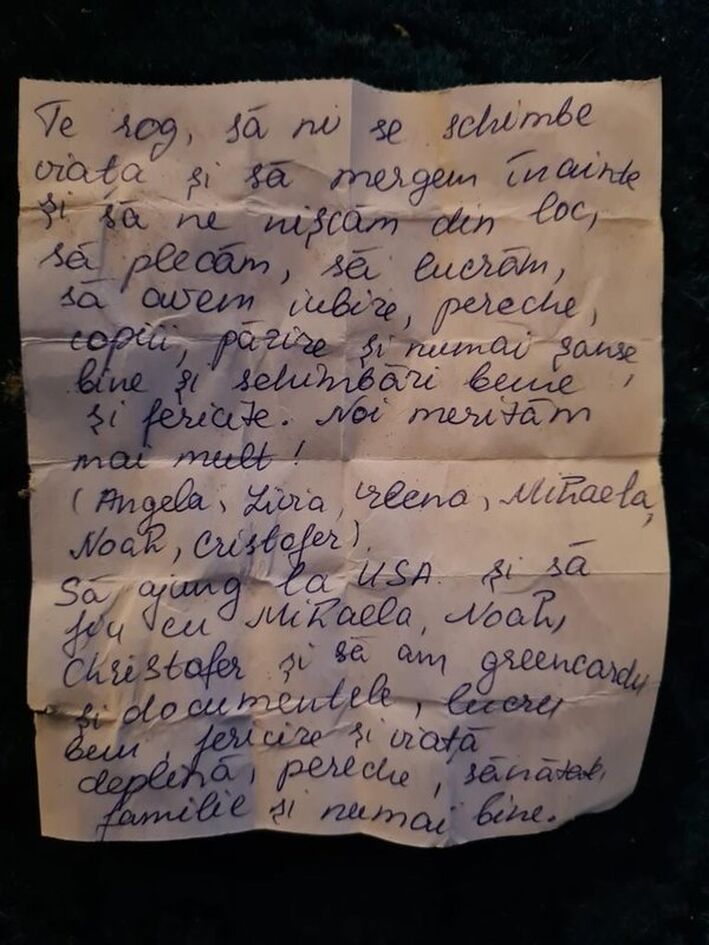 Te rog, să ni se schimbe
viața și să mergem înainte
și să ne nișcăm din loc,
să plecăm, să lucrăm,
să avem iubire, pereche,
copiii, părire și numai șanse
bine și schimbări bune,
și fericite. Noi merităm
mai mult!
(Angela, Livia, Elena, Mihaela,
Noah, Cristofer).
Să ajung la USA și să
fiu cu Mihaela, Noah,
Christofer și să am greencardu
și documentele, lucru
bun, fericire și viață
deplină, pereche, sănătate,
familie și numai bine.